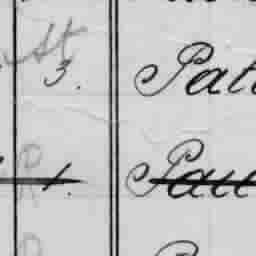 St
3. Pat
R 1. Pau
R